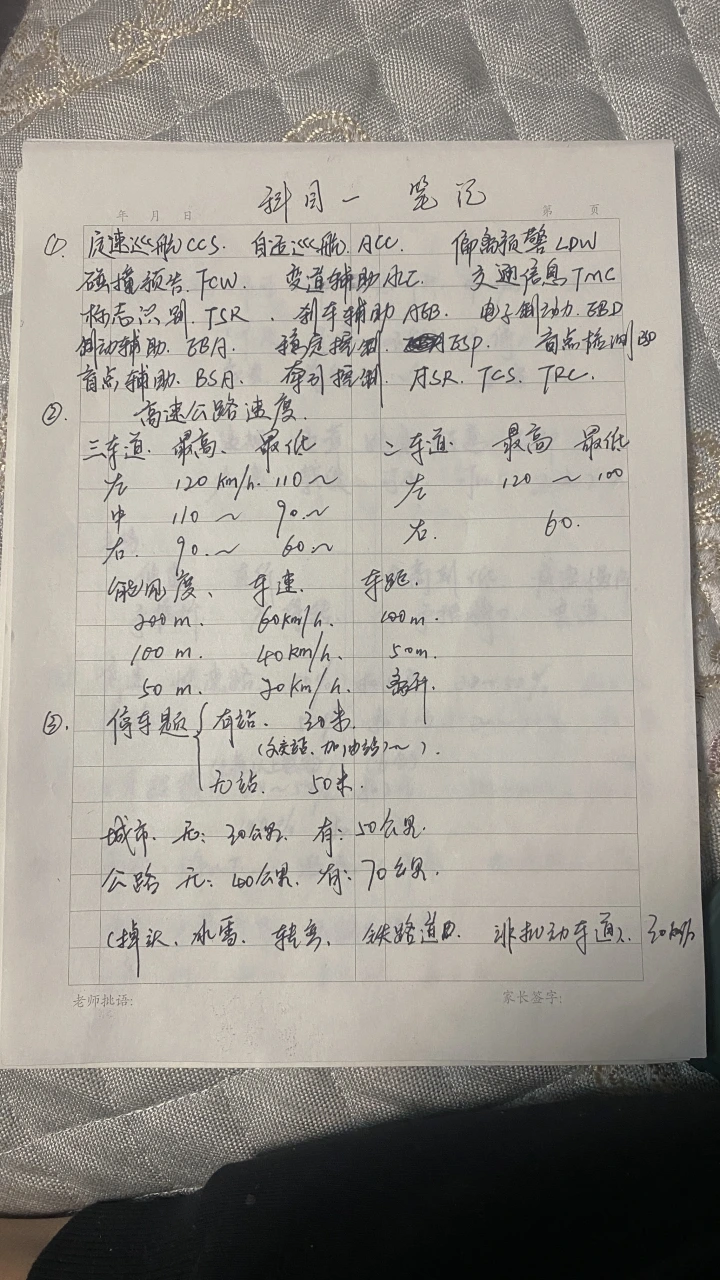 科目一 笔记
年 月 日 第 页
①. 定速巡航CCS. 自适巡航. ACC. 偏离预警LDW
碰撞预告. FCW. 变道辅助ALC. 交通信息TMC
标志识别. TSR. 刹车辅助AEB. 电子制动力. EBD
制动辅助. EBA. 稳定控制. ESP. 盲点检测BSD
盲点辅助. BSA. 牵引控制. ASR. TCS. TRC.
② 高速公路速度.
三车道. 最高、 最低 二车道. 最高 最低
左 120km/h. 110~ 左 120 ~ 100
中 110~ 90.~
右. 90.~ 60.~ 右. 60.
能见度、 车速. 车距.
200m. 60km/h. 100m.
100m. 40km/h. 50m.
50m. 20km/h. 离开.
③. 停车题 { 有站. 30米.
(公交站、加油站)~).
无站. 50米.
城市. 无: 30公里. 有: 50公里.
公路 无: 40公里. 有: 70公里.
(掉头、冰雪. 转弯、 铁路道口. 非机动车道). 30km/h
老师批语: 家长签字: